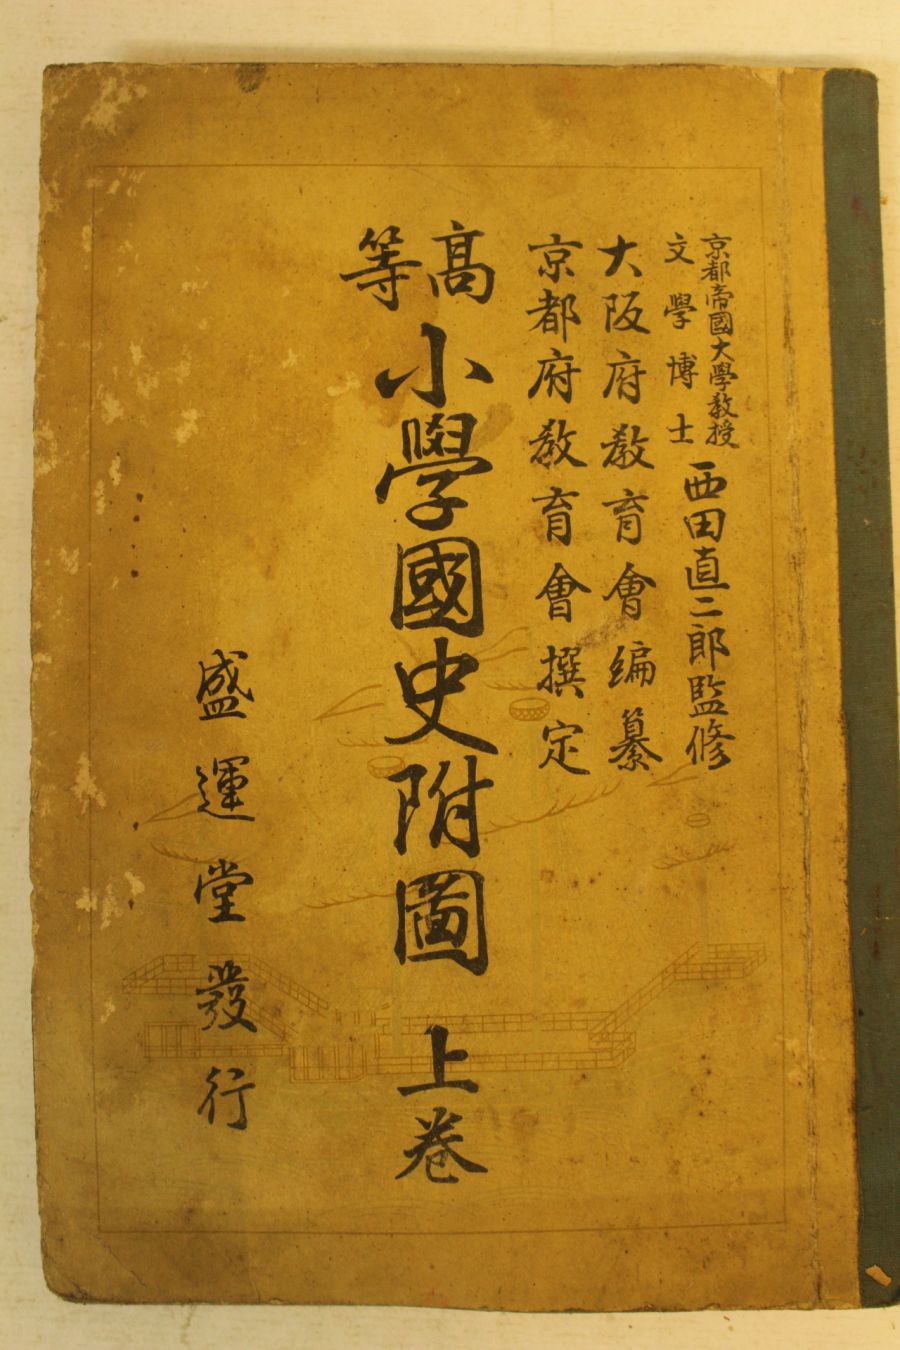 京都帝國大學敎授
文學博士
西田直二郎監修
大阪府敎育會編纂
京都府敎育會撰定
高等
小學國史附圖 上卷
盛運堂發行